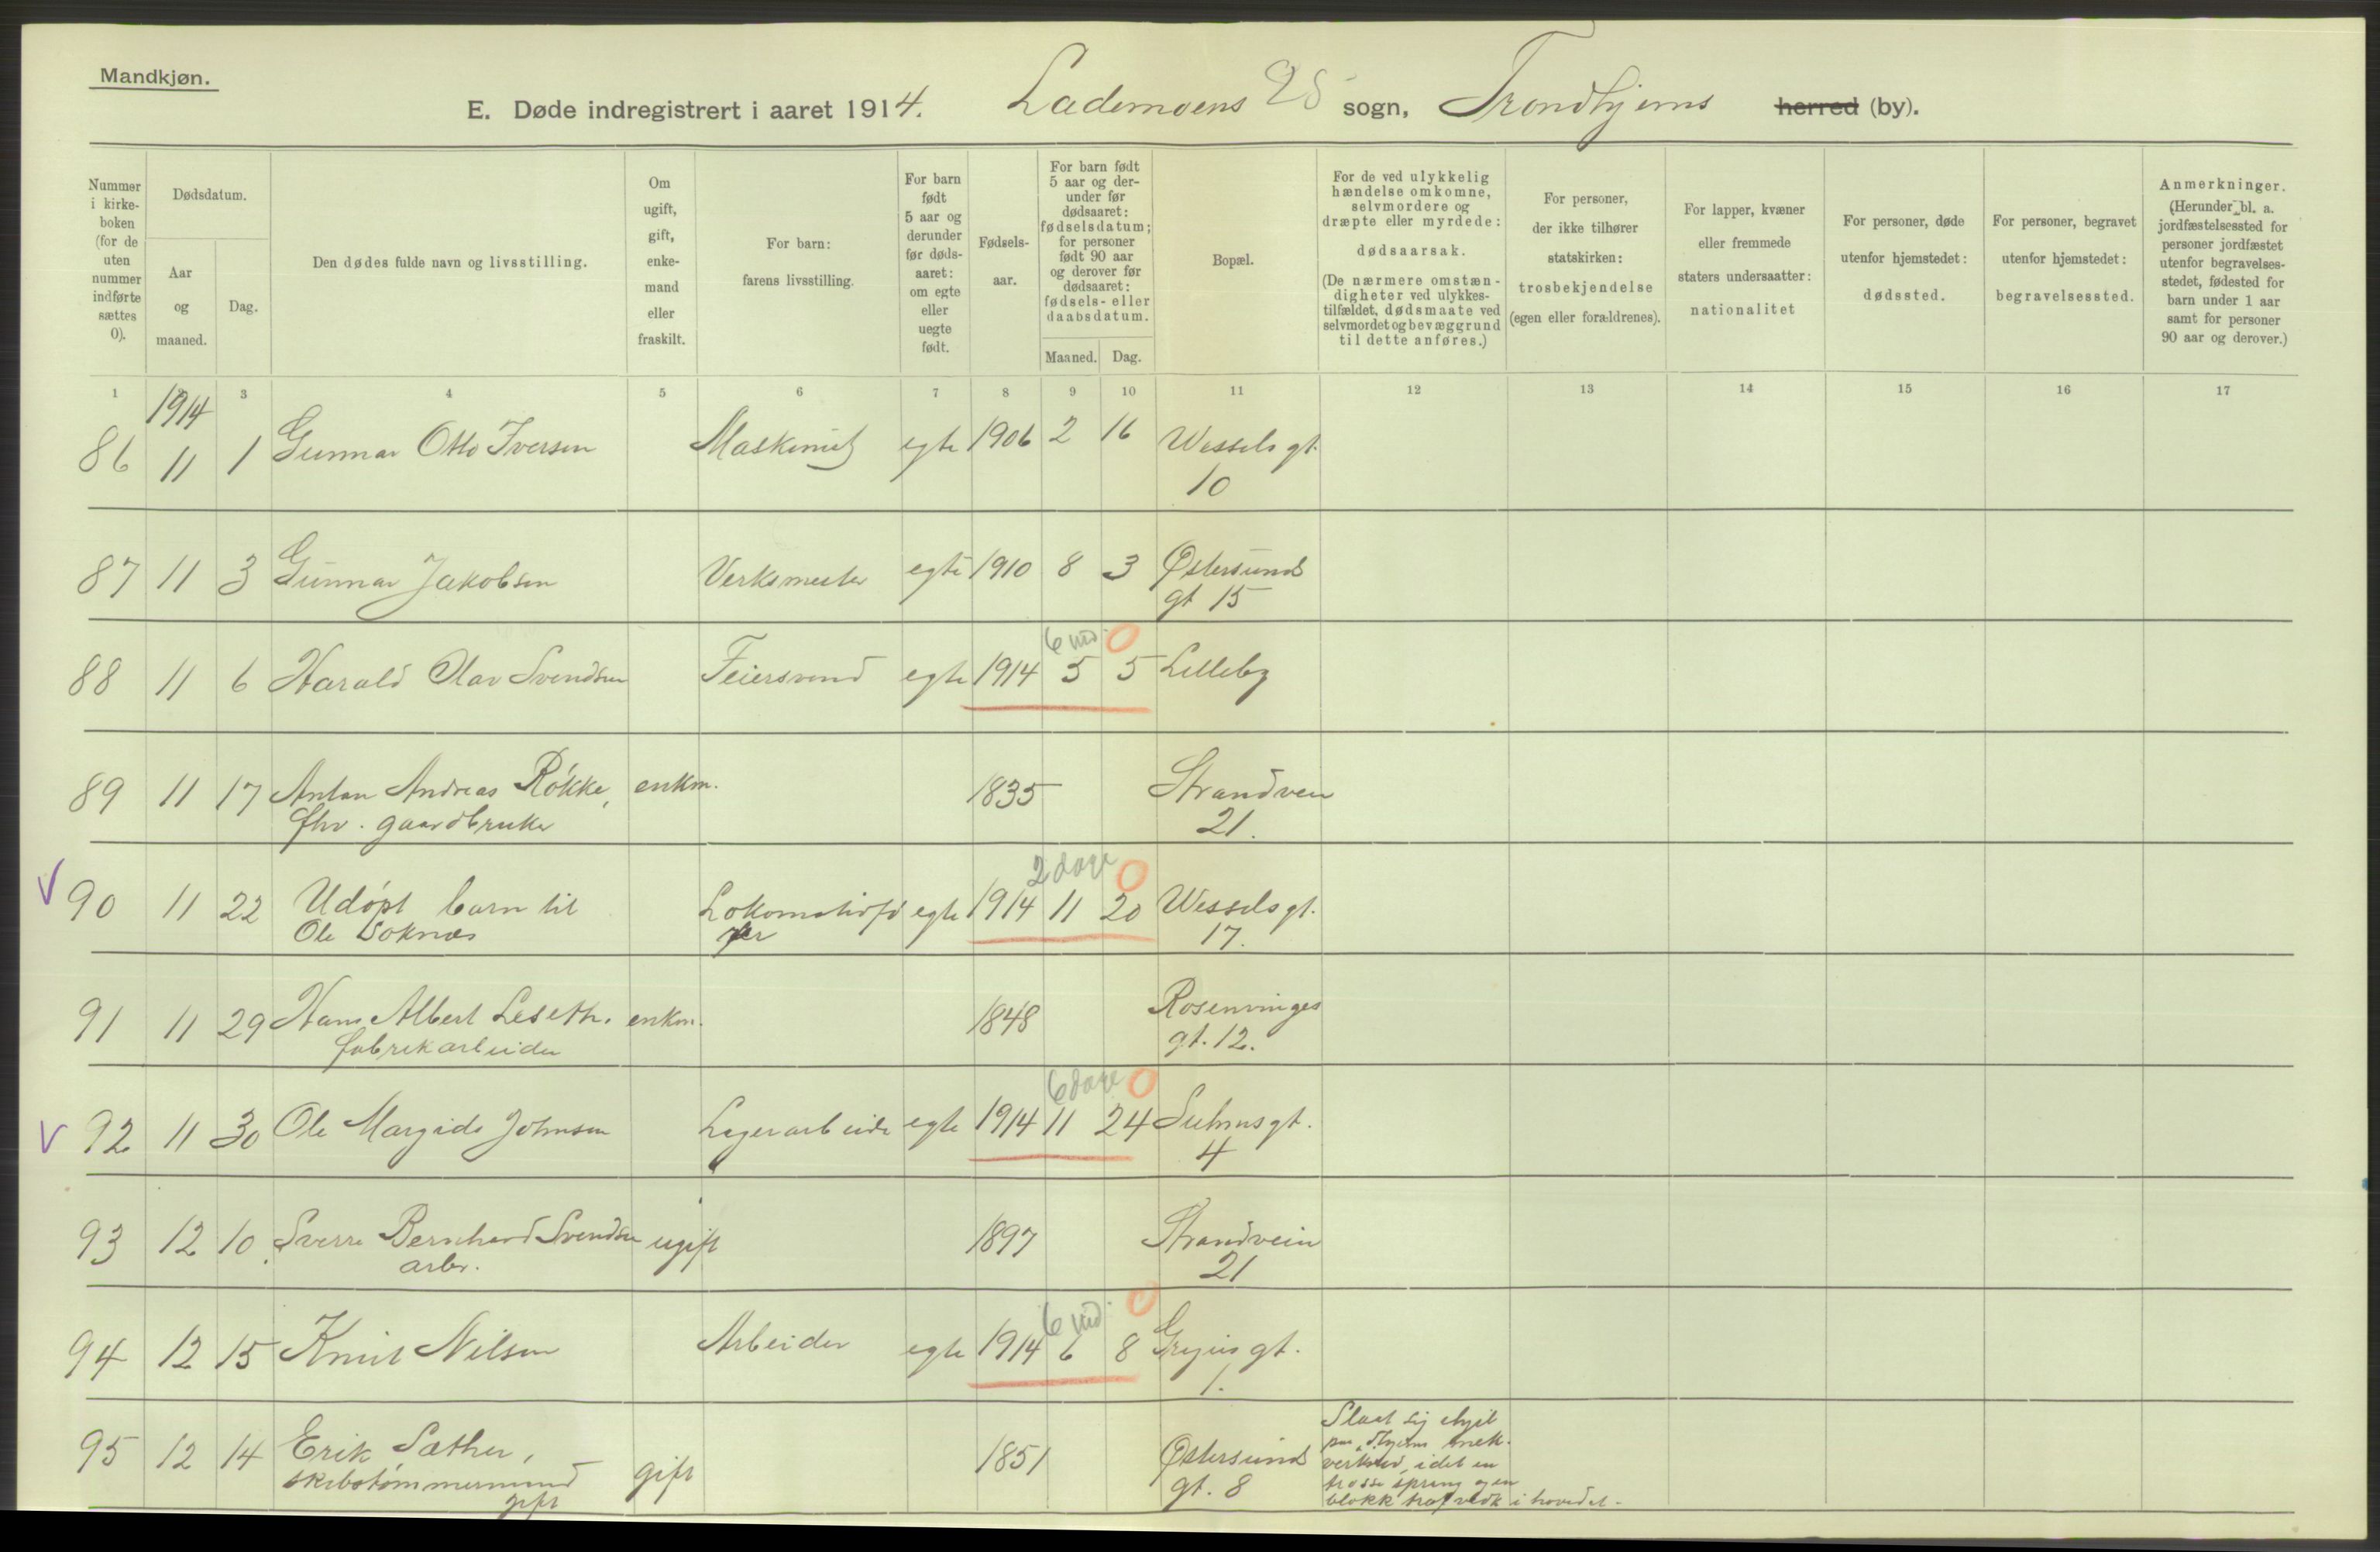 Mandkjøn.
E. Døde indregistrert i aaret 1914. Lademoens 28 sogn, Trondhjems herred (by).
Nummer i kirkeboken (for de uten nummer indførte sættes 0).
Dødsdatum.
Aar og maaned.
Dag.
Den dødes fulde navn og livsstilling.
Om ugift, gift, enkemand eller fraskilt.
For barn: farens livsstilling.
For barn født 5 aar og derunder før dødsaaret: om egte eller uegte født.
Fødselsaar.
For barn født 5 aar og derunder før dødsaaret: fødselsdatum; for personer født 90 aar og derover før dødsaaret: fødsels- eller daabsdatum.
Maaned. Dag.
Bopæl.
For de ved ulykkelig hændelse omkomne, selvmordere og dræpte eller myrdede: dødsaarsak. (De nærmere omstændigheter ved ulykkestilfældet, dødsmaate ved selvmordet og bevæggrund til dette anføres.)
For personer, der ikke tilhører statskirken: trosbekjendelse (egen eller forældrenes).
For lapper, kvæner eller fremmede staters undersaatter: nationalitet
For personer, døde utenfor hjemstedet: dødssted.
For personer, begravet utenfor hjemstedet: begravelsessted.
Anmerkninger. (Herunder bl. a. jordfæstelsessted for personer jordfæstet utenfor begravelsesstedet, fødested for barn under 1 aar samt for personer 90 aar og derover.)
1 3 4 5 6 7 8 9 10 11 12 13 14 15 16 17
1914
86 11 1 Gunnar Otto Iversen Maskinist egte 1906 2 16 Wessels gt.
10
87 11 3 Gunnar Jakobsen Verksmester egte 1910 8 3 Østersunds
gt 15
6 md. 0
88 11 6 Harald Olav Svendsen Feiersvend egte 1914 5 5 Lilleby
89 11 17 Anton Andreas Røkke, enkm. 1835 Strandvein
fhv. gaardbruker 21.
2 dage 0
V 90 11 22 Udøpt barn til Lokomotivfø egte 1914 11 20 Wessels gt.
Ole Soknes rer 17.
91 11 29 Hans Albert Leseth. enkm. 1848 Rosenvinges
fabrikarbeider gt. 12.
6 dage 0
V 92 11 30 Ole Margido Johnsen Lagerarbeide egte 1914 11 24 Suhms gt.
4
93 12 10 Sverre Bernhard Svendsen ugift 1897 Strandvein
arbr. 21
6 md. 0
94 12 15 Knut Nilsen Arbeider egte 1914 6 8 Gregus gt.
1.
95 12 14 Erik Sæther, gift 1851 Østersunds
skibstømmermand gt. 8
gift
Slaat sig ihjel
paa Thjems mek.
verksted, idet en
trosse sprang og en
blokk traf vedk i hovedet.